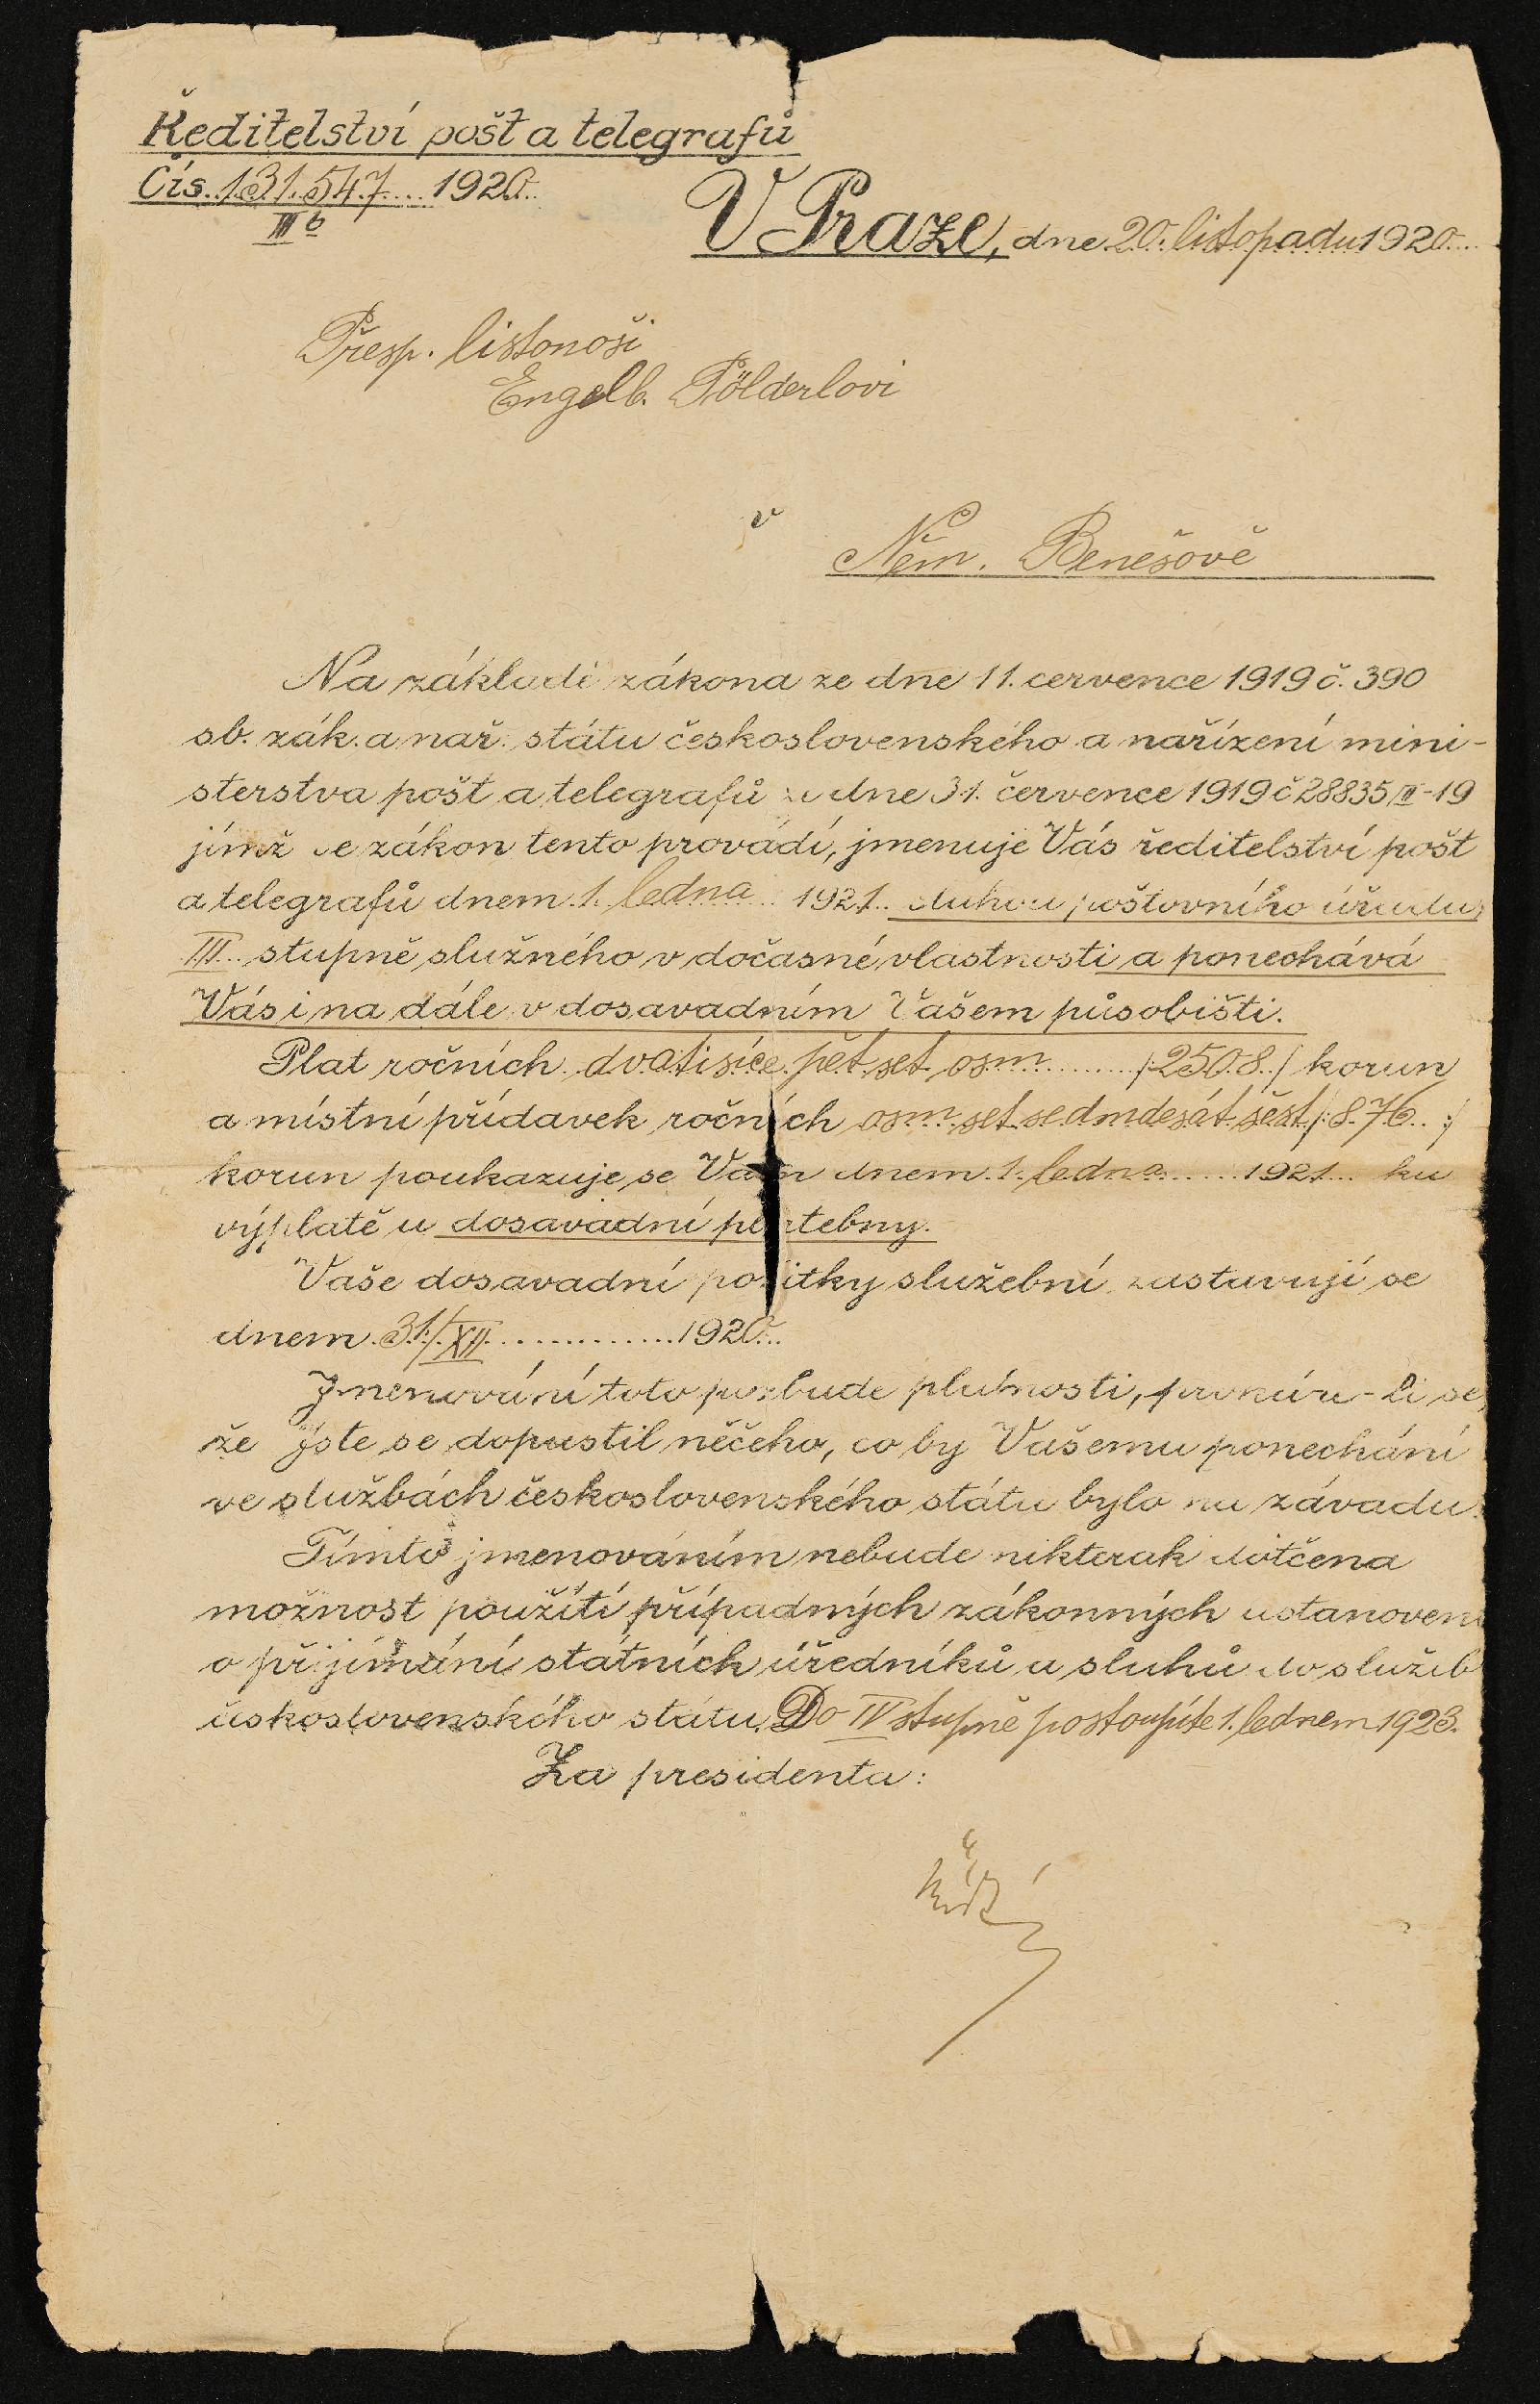 Ředitelství pošt a telegrafů
Čís. 131.547.... 1920..
III b
V Praze, dne 20. listopadu 1920...
Přesp. listonoši
Engelb. Pölderlovi
v
Něm. Benešově
Na základě zákona ze dne 11. července 1919 č. 390
sb. zák. a nař. státu československého a nařízení mini-
sterstva pošt a telegrafů ze dne 31. července 1919 č 28835/III-19
jímž se zákon tento provádí, jmenuje Vás ředitelství pošt
a telegrafů dnem 1. ledna 1921. sluhou poštovního úřadu
III.. stupně služného v dočasné vlastnosti a ponechává
Vás i na dále v dosavadním Vašem působišti.
Plat ročních dvatisíce pět set osm ........ /2508./ korun
a místní přídavek ročních osm set sedmdesát šest /: 876.. :/
korun poukazuje se Vám dnem 1. ledna ...... 1921... ku
výplatě u dosavadní platebny.
Vaše dosavadní požitky služební zastavují se
dnem 31./XII ............. 1920...
Jmenování toto pozbude platnosti, prokáže-li se,
že jste se dopustil něčeho, co by Vašemu ponechání
ve službách československého státu bylo na závadu.
Tímto jmenováním nebude nikterak dotčena
možnost použití případných zákonných ustanovení
o přijímání státních úředníků a sluhů do služeb
československého státu. Do IV stupně postoupíte 1. lednem 1923.
Za presidenta: